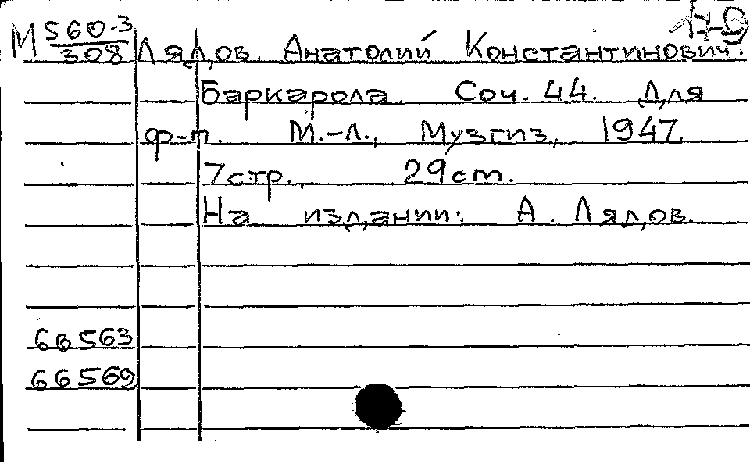 М 560-3
308 Лядов Анатолий Константинович.
Баркарола. Соч. 44. Для
ф-п. М.-Л., Музгиз, 1947.
7 стр. 29 cm.
На издании: А. Лядов.
66563
66569